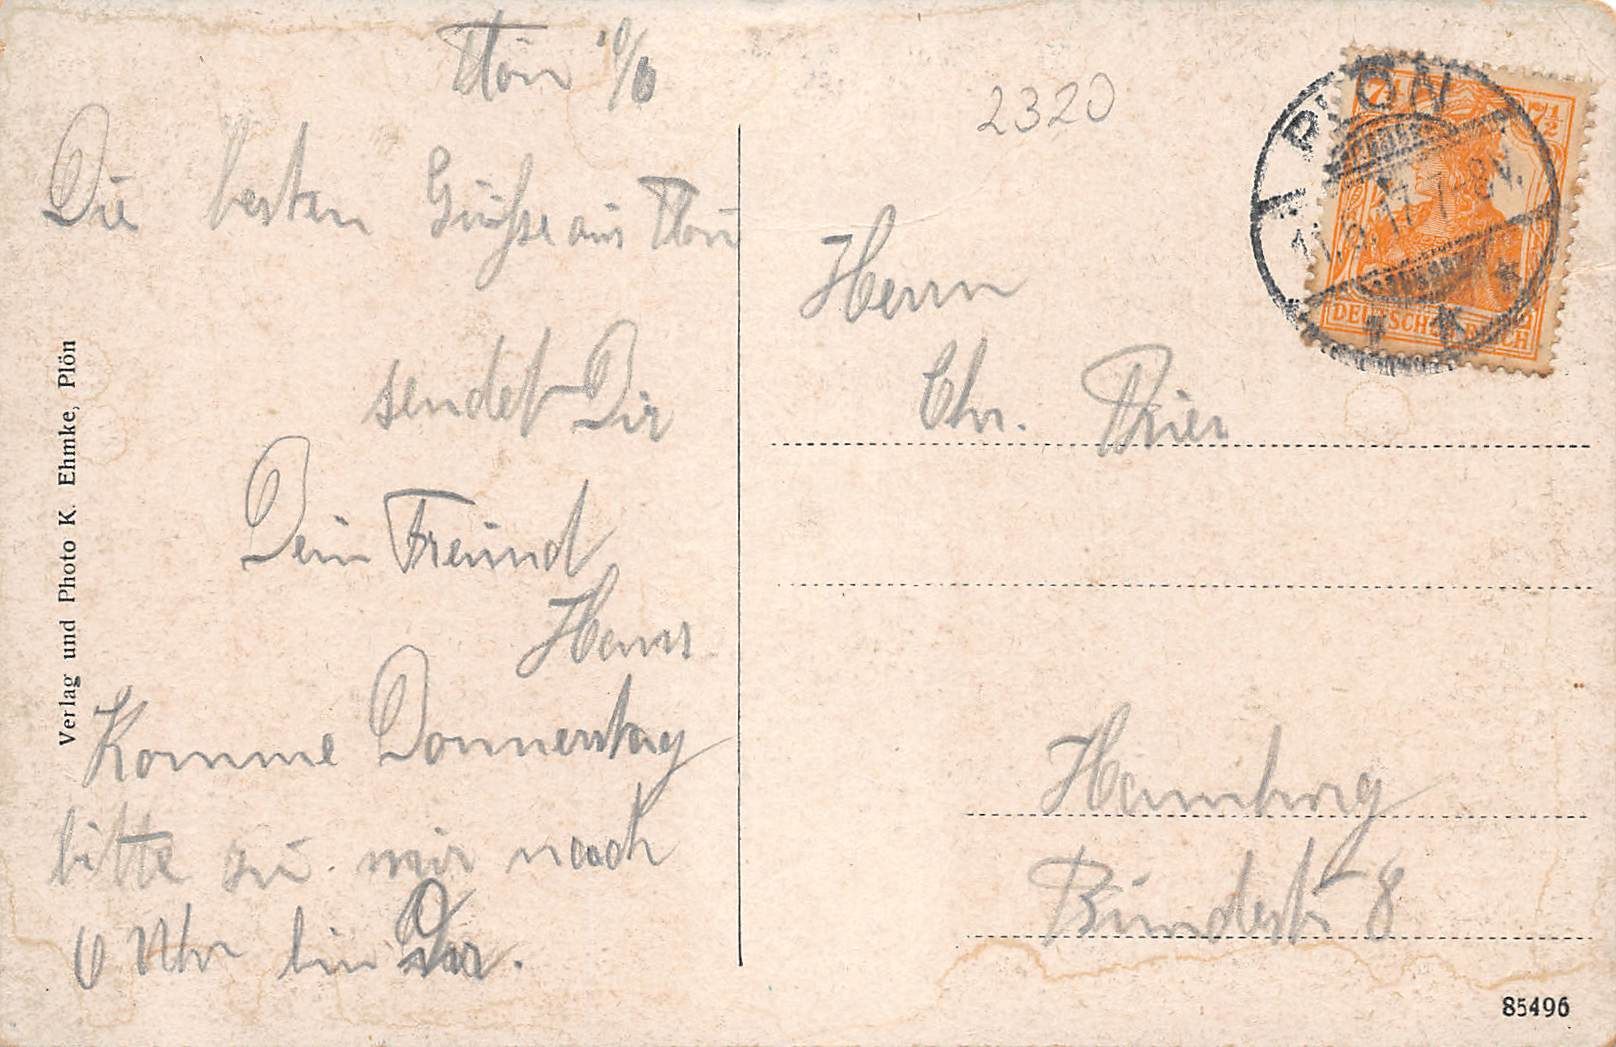 Plön
Die besten Grüsse aus Plön
sendet Dir
Dein Freund
Hans
Komme Donnerstag
bitte zu mir nach
6 Uhr bin Dar.
Verlag und Photo K. Ehmke, Plön
2320
PLÖN
7½ 7½
DEUTSCHES REICH
Herrn
Chr. Thier
Hamburg
Bundesstr 8
85496